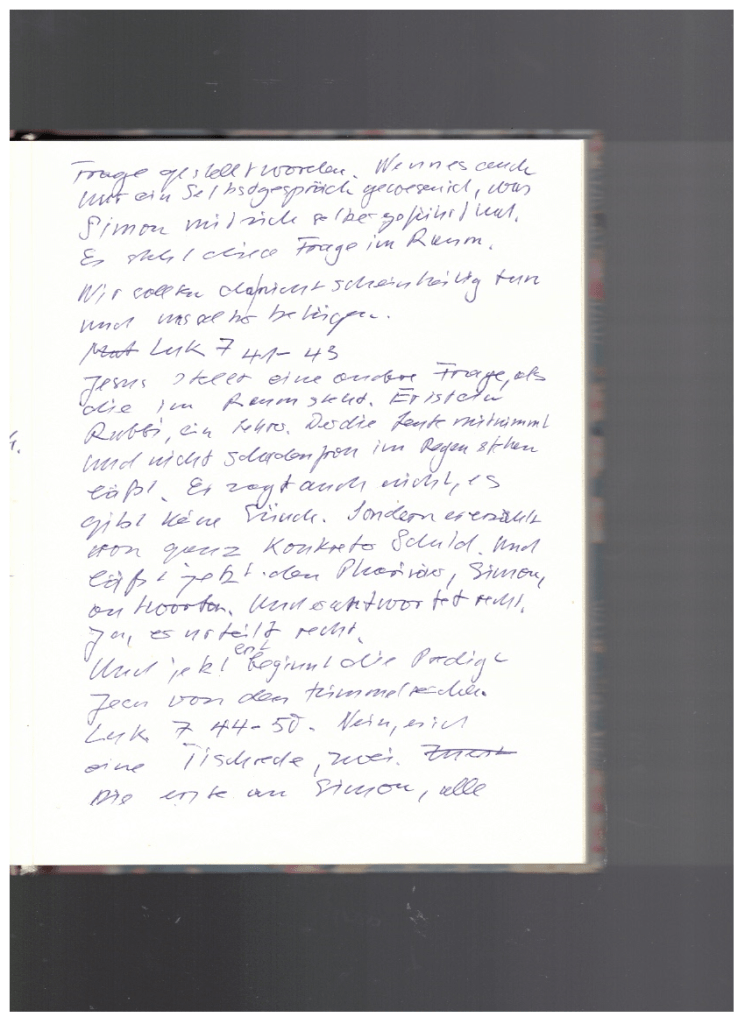 Frage gestellt worden. Wenn es auch
nur ein Selbstgespräch gewesen ist, was
Simon mit sich selber geführt hat.
Es steht diese Frage im Raum.
Wir sollten da nicht scheinheilig tun
und uns selbst belügen.
Luk 7 41-43
Jesus stellt eine andere Frage, als
die im Raum steht. Er ist ein
Rabbi, ein Lehrer. Der die Leute mitnimmt
und nicht schadenfroh im Regen stehen
läßt. Er sagt auch nicht, es
gibt keine Sünde. Sondern er erzählt
von ganz konkreter Schuld. Und
läßt jetzt den Pharisäer, Simon,
antworten. Und er antwortet recht.
Ja, er urteilt recht.
Und jetzt erst beginnt die Predigt
Jesu von dem Himmelreiche.
Luk 7 44-50. Nein, es ist
eine Tischrede, zwei.
Die erste an Simon, alle